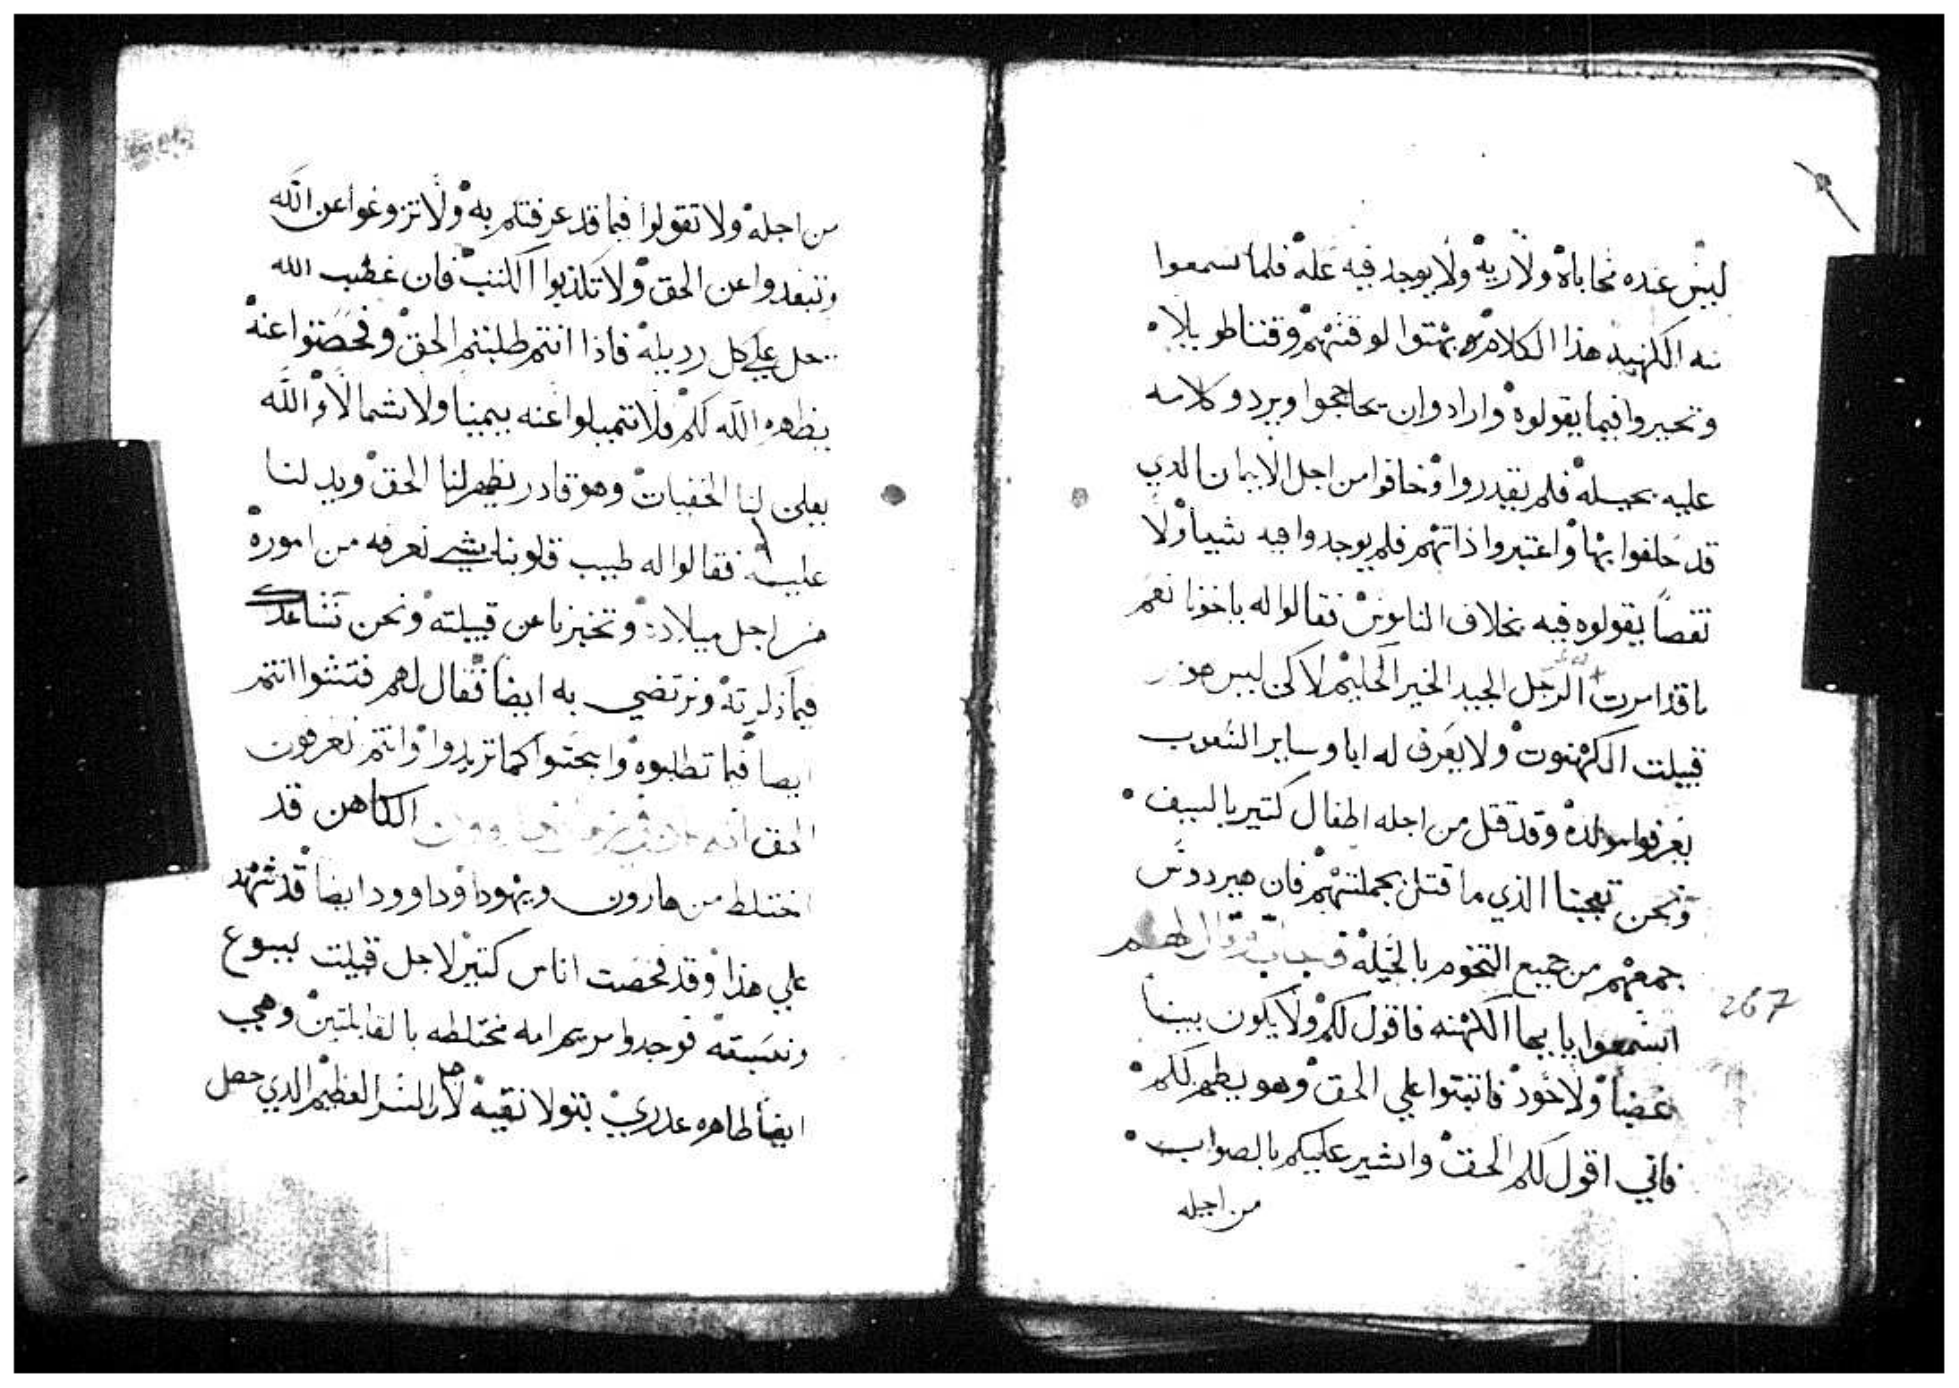 ليس عنده محاباه ولا ريه ولا يوجد فيه عله فلما سمعوا
الكهنه هذا الكلام بهتوا لوقتهم وقتا طويلا
وتحيروا فيما يقولوه وارادوا ان يحاججوا ويردو كلامه
عليه بحيله فلم يقدروا وخافوا من اجل الايمان الدي
قد حلفوا بها واعتبروا ذاتهم فلم يوجدوا فيه شيا ولا
نقصا يقولوه فيه بخلاف الناموس فقالوا له ياخونا نعم
ما قد امرت الرجل الجيد الخير الحليم لاكن ليس هو
قبيلت الكهنوت ولا يعرف له ابا وساير الشعوب
يعرفوا مولده وقد قتل من اجله اطفال كتير بالسيف
ونحن تعجبنا الذي ما قتل بجملتهم فان هيردوس
جمعهم من جميع التخوم بالحيله قال لهم
اسمعوا يا ايها الكهنه فاقول لكم ولا يكون بيننا
غضبا ولا حود فاتبتوا علي الحق وهو يظهر لكم
فاني اقول لكم الحق واشير عليكم بالصواب
من اجله
267
من اجله ولا تقولوا فيما قد عرفتم به ولا تزوغوا عن الله
وتبعدوا عن الحق ولا تكذبوا الكتب فان غضب الله
حل علي كل رديله فاذا انتم طلبتم الحق وفحصتوا عنه
يظهره الله لكم ولا تميلوا عنه يمينا ولا شمالا الله
يعلن لنا الخفيات وهو قادر يظهر لنا الحق ويدلنا
عليه فقالوا له طيب قلوبنا بشي نعرفه من اموره
من اجل ميلاده وتخبرنا عن قبيلته ونحن نساعدك
فيما ذكرته ونرتضي به ايضا فقال لهم فتشوا انتم
ايضا فيما تطلبوه وابحتوا كما تريدوا وانتم تعرفون
الحق انه الكاهن قد
اختلط من هارون ويهودا وداوود ايضا قد شهد
علي هذا وقد فحصت اناس كتير لاجل قبيلت يسوع
ونسبته فوجدوا مريم امه مختلطه بالقابلتين وهي
ايضا طاهره عدري بتولا نقيه لاجل السر العظيم الدي حصل